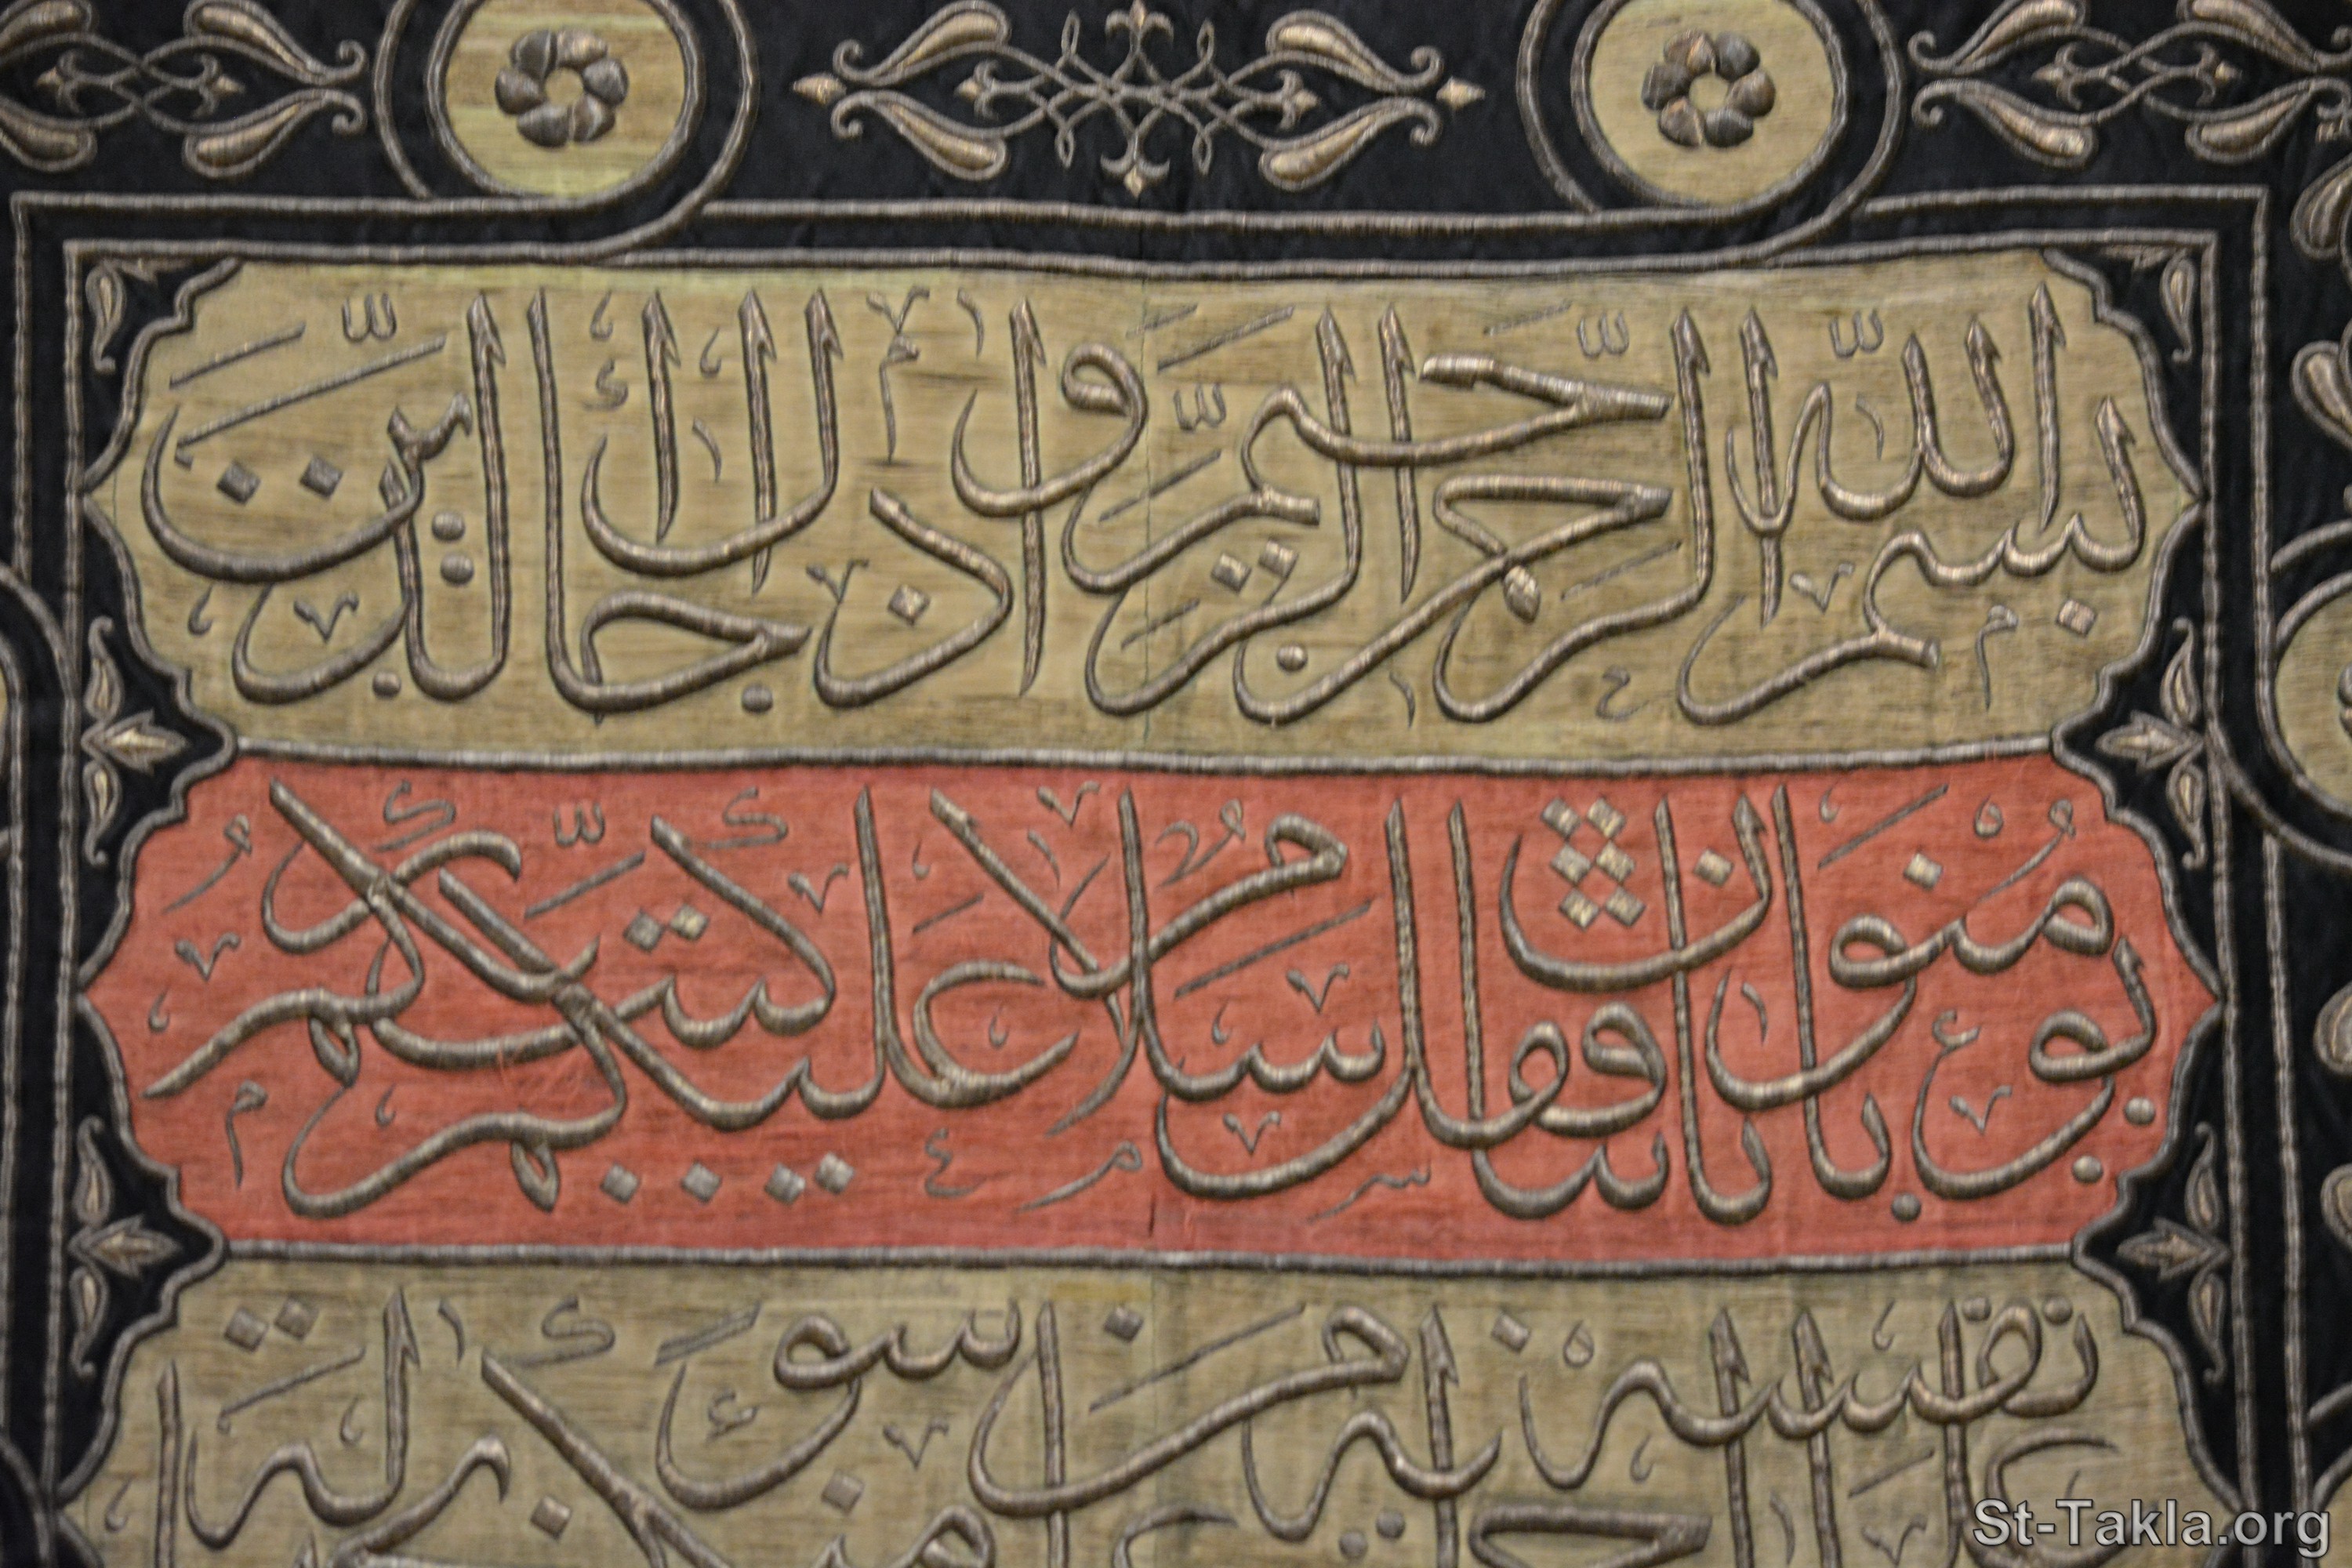 بسم الله الرحمن الرحيم واذا جاءك الذين
يؤمنون بآياتنا فقل سلام عليكم كتب ربكم
على نفسه الرحمة انه من عمل منكم سوءا بجهالة
St-Takla.org